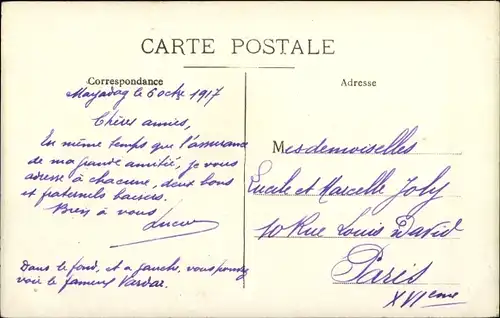 CARTE POSTALE
Correspondance
Adresse
Mayadag le 6 octre 1917
Chères amies,
En même temps que l'assurance
de ma grande amitié, je vous
adresse à chacune, deux bons
et fraternels baisers.
Bien à vous
Lucien
Dans le fond, et a gauche, vous pouvez
voir le fameux Vardar.
Mesdemoiselles
Lucile et Marcelle Joly
10 Rue Louis David
Paris
XVIeme